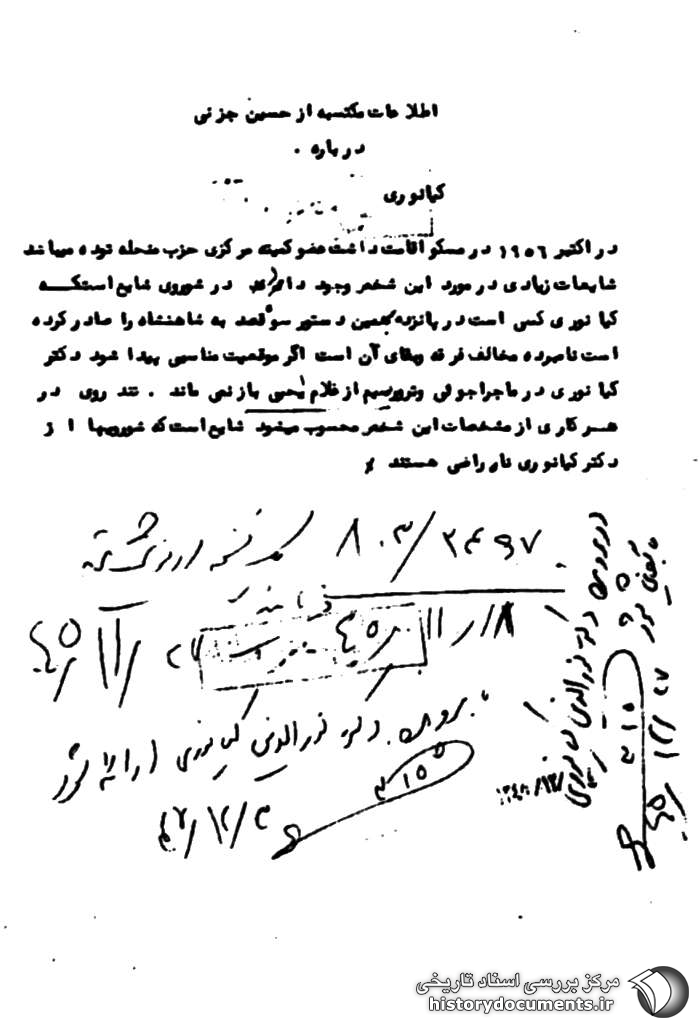 اطلاعات مکتسبه از حسین جزنی
درباره .
کیانوری
در اکتبر ۱۹۵۶ در مسکو اقامت داشت عضو کمیته مرکزی حزب منحله توده میباشد
شایعات زیادی در مورد این شخص وجود دارد در شوروی شایع استکه
کیانوری کسی است در پانزده بهمن دستور سوقصد به شاهنشاه را صادر کرده
است نامبرده مخالف فرقه وبقای آن است اگر موقعیت مناسبی پیدا شود دکتر
کیانوری در ماجراجوئی وتروریسم از غلام یحیی بازنمی ماند . تند روی در
هرکاری از مشخصات این شخص محسوب میشود شایع است که شورویها از
دکتر کیانوری ناراضی هستند
۸۰۳/۲۴۹۷
۱۱/۱۸
۴۵/۱۱/
بپرونده دکتر نورالدین کیانوری ارائه شود
۳۱۵
۱۲/۳
پرونده دکتر نورالدین کیانوری
بایگانی شود
۳۱۵
۴۵/۱۲/۲۷
مرکز بررسی اسناد تاریخی
historydocuments.ir